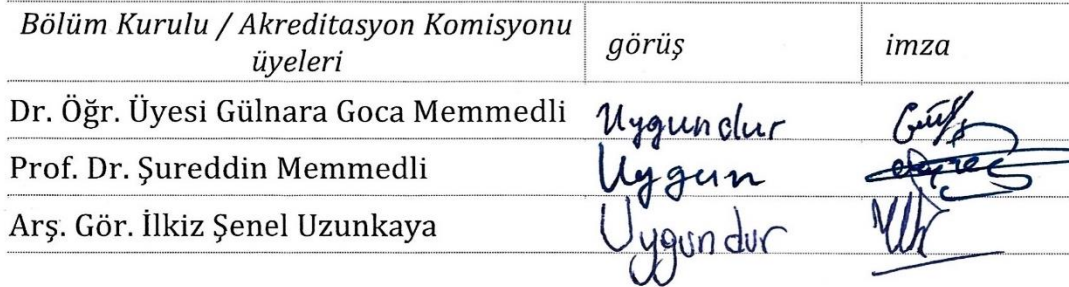 Bölüm Kurulu / Akreditasyon Komisyonu üyeleri görüş imza
Dr. Öğr. Üyesi Gülnara Goca Memmedli Uygundur
Prof. Dr. Şureddin Memmedli Uygun
Arş. Gör. İlkiz Şenel Uzunkaya Uygundur